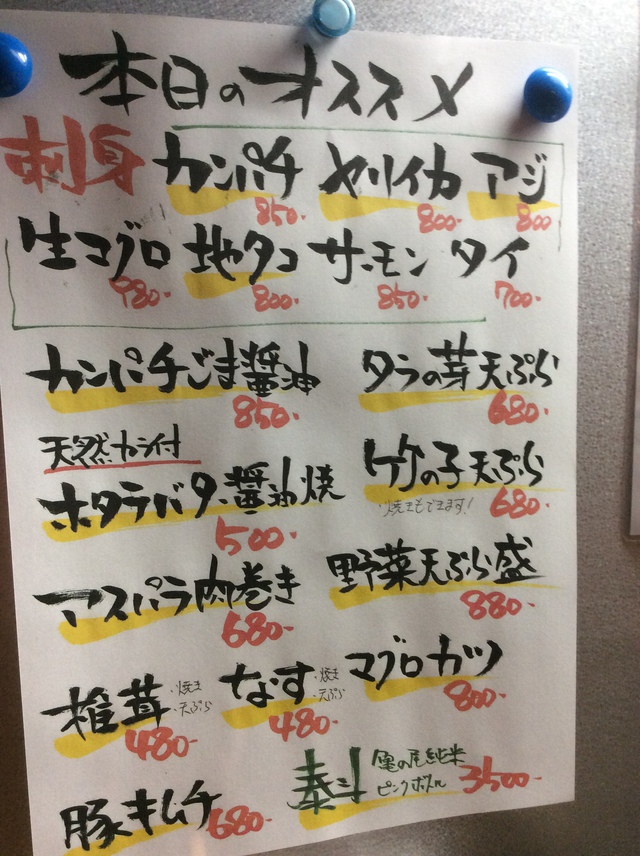 本日のオススメ
刺身 カンパチ ヤリイカ アジ
850- 800- 800
生マグロ 地タコ サーモン タイ
980- 800- 850- 700-
カンパチごま醤油 タラの芽天ぷら
850- 680-
天然カン付
ホタテバター醤油焼 竹の子天ぷら
500- 焼きもできます! 680-
アスパラ肉巻き 野菜天ぷら盛
680- 880-
椎茸 ・焼き ・天ぷら なす ・焼き ・天ぷら マグロカツ
480- 480- 800-
泰斗 亀の尾純米 ピンクボトル 3500-
豚キムチ 680-